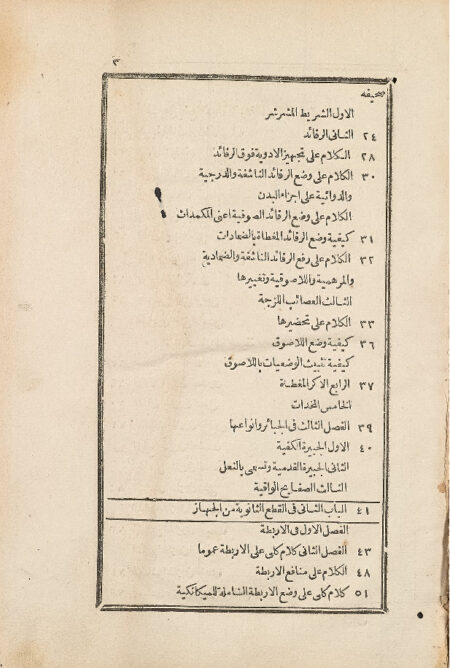 ٣
صحيفه
الاول الشريط المشرشر
٢٤ الثانى الرفائد
٢٨ الكلام على تجهيز الادوية فوق الرفائد
٣٠ الكلام على وضع الرفائد الناشفة والدرجية
والدوائية على اجزاء البدن
الكلام على وضع الرفائد الصوفية اعنى المكمدات
٣١ كيفية وضع الرفائد المغطاة بالضمادات
٣٢ الكلام على رفع الرفائد الناشفة والضمادية
والمرهمية واللاصوقية وتغييرها
الثالث العصائب اللزجة
٣٣ الكلام على تحضيرها
٣٦ كيفية وضع اللاصوق
كيفية تثبيت الوضعيات باللاصوق
٣٧ الرابع الاكر المغطية
الخامس المخدات
٣٩ الفصل الثالث فى الجبائر وانواعها
٤٠ الاول الجبيرة الكفية
الثانى الجبيرة القدمية وتسمى بالنعل
الثالث الصفايح الواقية
٤١ الباب الثانى فى القطع الثانوية من الجهاز
الفصل الاول فى الاربطة
٤٣ الفصل الثانى كلام كلى على الاربطة عموما
٤٨ الكلام على منافع الاربطة
٥١ كلام كلى على وضع الاربطة الشاملة للميكانيكية